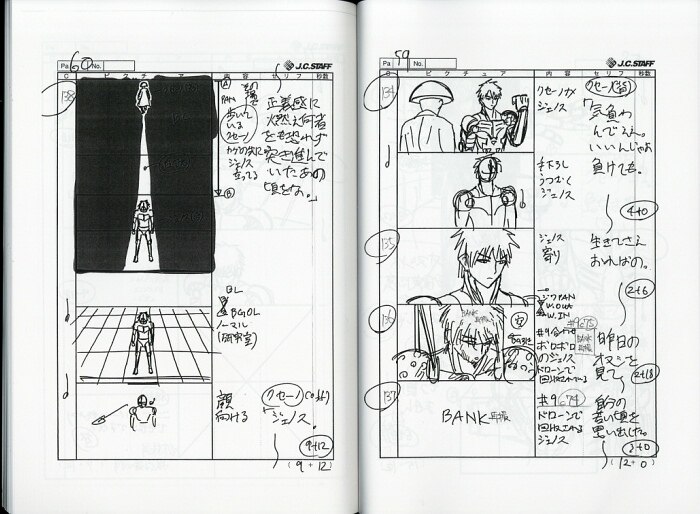 Pa. 59 No. J.C.STAFF
C ピクチュア 内容 セリフ 秒数
134
クセーノが
ジェノス
クセーノ(背)
「気負わ
んでええ。
いいんじゃよ
負けても。
4+0
手下ろし
うつむく
ジェノス
135
ジェノス
寄り
生きてさえ
おればの。
2+6
136
BANK
W.OUT
W.IN
#9
ボロボロ
のジェノス
ドローンで
昨日の
オマエを
見て
2+18
137
BANK兼用
#9
674
ドローンで
ジェノス
自分の
若い頃を
思い出した。
3+0
(12+0)
Pa. 60 No. J.C.STAFF
C ピクチュア 内容 セリフ 秒数
138
A
PAN
歩いて
いる
クセーノ
ジェノス
立ってる
B
正義感に
燃え何者
をも恐れず
突き進んで
いたあの
頃をな。」
OL
BGOL
ノーマル
(研究室)
顔
向ける
クセーノ(off)
「ジェノス。
9+12
(9+12)